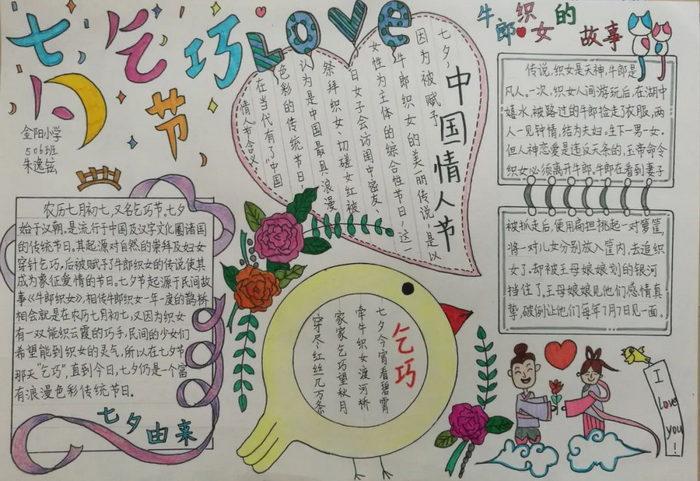 七夕乞巧节
LOVE
金阳小学
506班
朱逸铉
农历七月初七,又名乞巧节,七夕
始于汉朝,是流行于中国及汉字文化圈诸国
的传统节日,其起源对自然的崇拜及妇女
穿针乞巧,后被赋予了牛郎织女的传说使其
成为象征爱情的节日。七夕节起源于民间故
事《牛郎织女》,相传牛郎织女一年一度的鹊桥
相会就是在农历七月初七,又因为织女
有一双能织云霞的巧手,民间的少女们
希望能到织女的灵气,所以在七夕节
那天“乞巧”,直到今日,七夕仍是一个富
有浪漫色彩传统节日。
七夕由来
中国情人节
七夕
因为被赋予
牛郎织女的美丽传说,是以
女性为主体的综合性节日,这一
日女子会访闺中密友
祭拜织女、切磋女红被
认为是中国最具浪漫
色彩的传统节日
在当代有了中国
情人节含义
乞巧
七夕今宵看碧霄
牵牛织女渡河桥
家家乞巧望秋月
穿尽红丝几万条
牛郎织女的故事
传说,织女是天神,牛郎是
凡人。一次,织女人间游玩后,在湖中
嬉水,被路过的牛郎捡走了衣服,两
人一见钟情,结为夫妇,生下一男一女。
但人神恋爱是违反天条的,玉帝命令
织女必须离开牛郎,牛郎在看到妻子
被抓走后,使用扁担挑起一对箩筐,
将一对儿女分别放入筐内,去追织
女了,却被王母娘娘划的银河
挡住了。王母娘娘见他们感情真
挚,破例让他们每年7月7日见一面。
I love you!